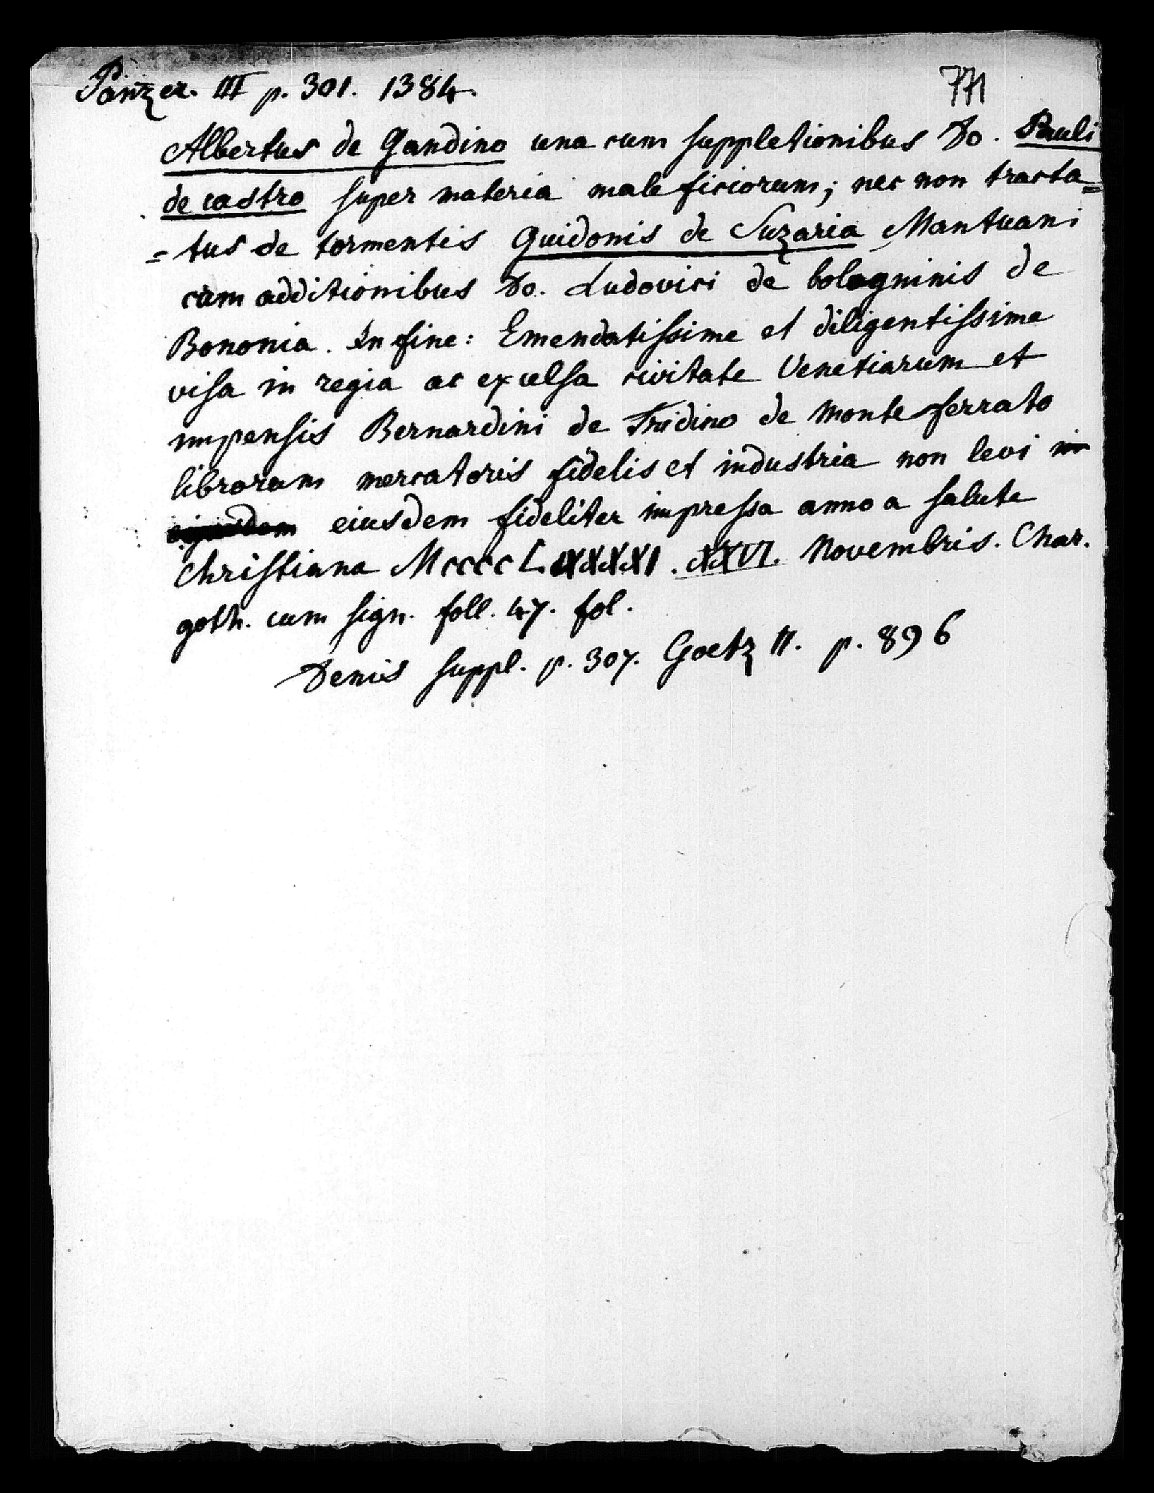 Panzer. III p. 301. 1384.
771
Albertus de Gandino una cum suppletionibus Do. Pauli
de castro super materia maleficiorum; nec non tracta=
=tus de tormentis Guidonis de Suzaria Mantuani
cum additionibus Do. Ludovici de bologninis de
Bononia. In fine: Emendatissime et diligentissime
visa in regia ac excelsa civitate Venetiarum et
impensis Bernardini de Tridino de Monte ferrato
librorum mercatoris fidelis et industria non levi in
eiusdem fideliter impressa anno a salute
christiana MccccLXXXXI. XXVI. Novembris. Char.
goth. cum sign. foll. 47. fol.
Denis suppl. p. 307. Goetz II. p. 896